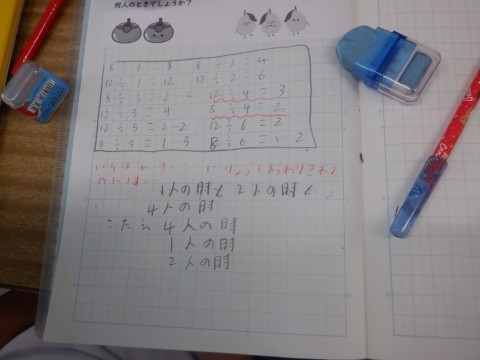 何人のときでしょうか?
8 ÷ 1 = 8 8 ÷ 2 = 4
12 ÷ 1 = 12 12 ÷ 2 = 6
8 ÷ 3 = 2…2 12 ÷ 4 = 3
12 ÷ 3 = 4 8 ÷ 4 = 2
12 ÷ 5 = 2…2 12 ÷ 6 = 2
8 ÷ 5 = 1…3 8 ÷ 6 = 1…2
1人の時と2人の時と、
4人の時
こたえ 4人の時
1人の時
2人の時